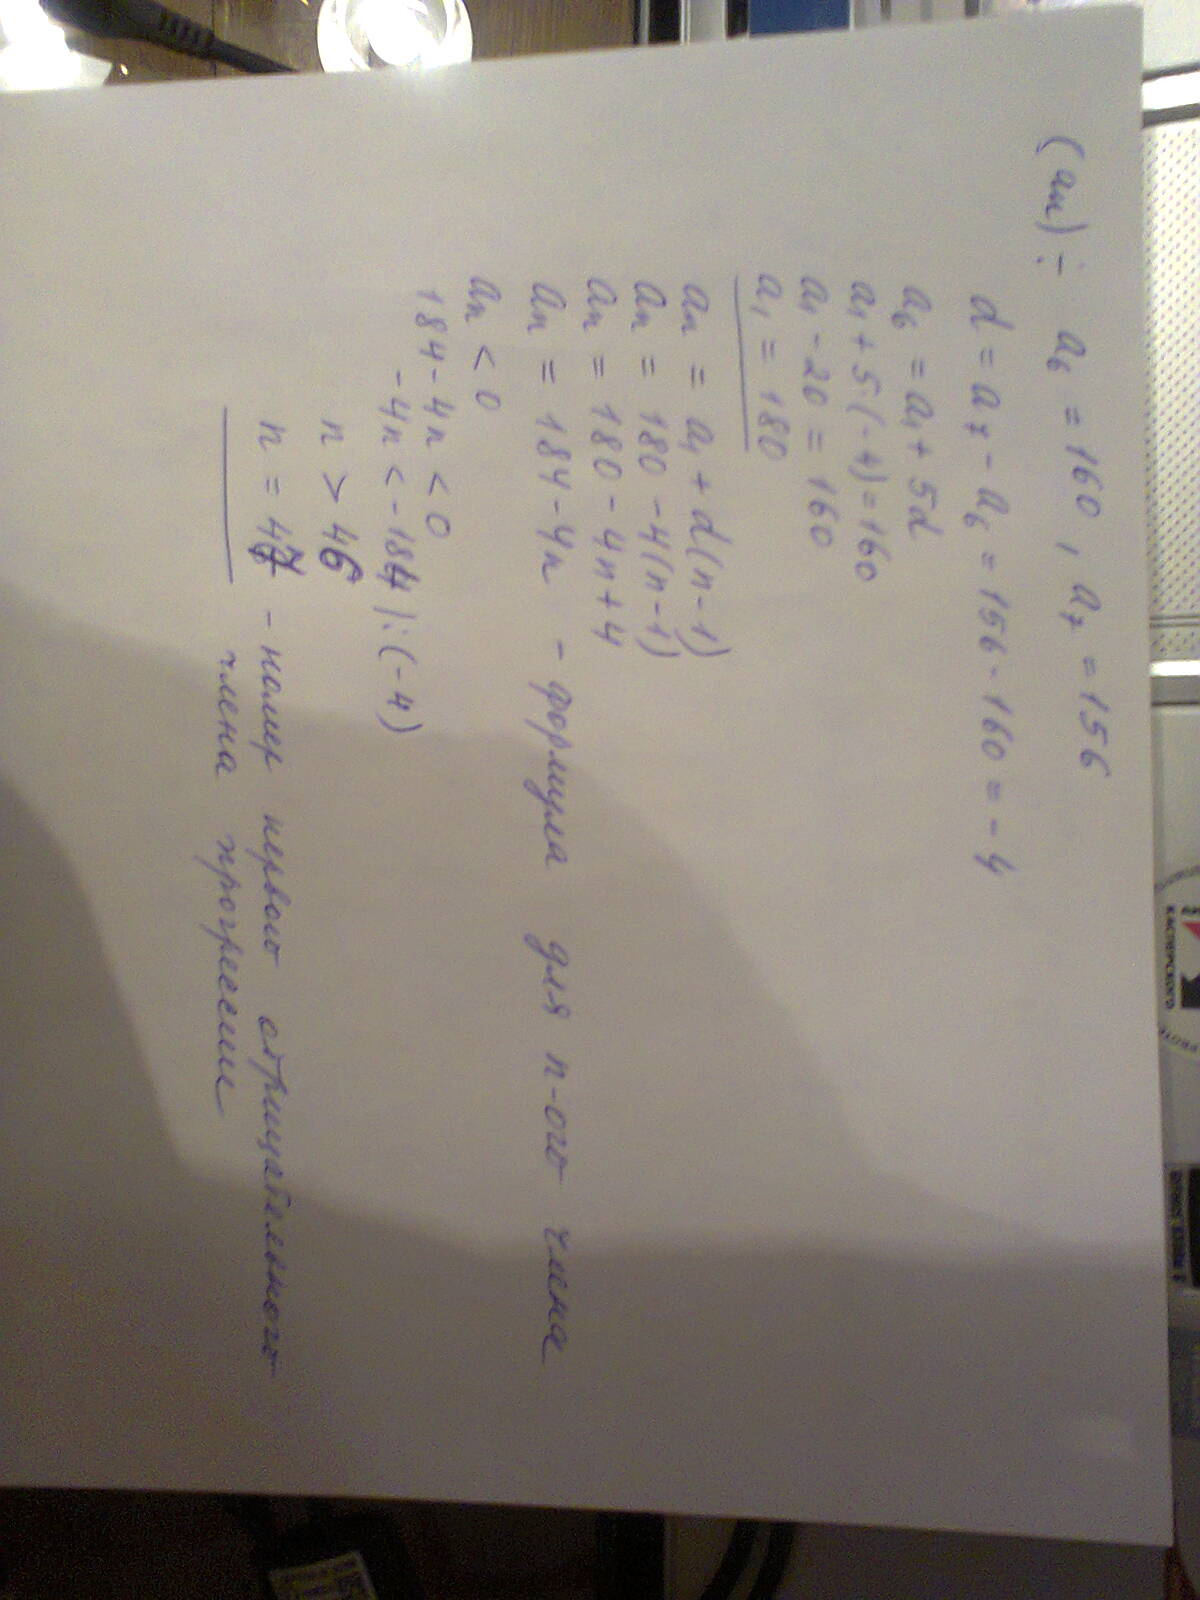 (an) ÷ a₆ = 160, a₇ = 156
d = a₇ - a₆ = 156 - 160 = -4
a₆ = a₁ + 5d
a₁ + 5·(-4) = 160
a₁ - 20 = 160
a₁ = 180
an = a₁ + d(n-1)
an = 180 - 4(n-1)
an = 180 - 4n + 4
an = 184 - 4n - формула для n-ого члена
an < 0
184 - 4n < 0
-4n < -184 | : (-4)
n > 46
n = 47 - номер первого отрицательного
члена прогрессии
КАСПЕРСКОГО